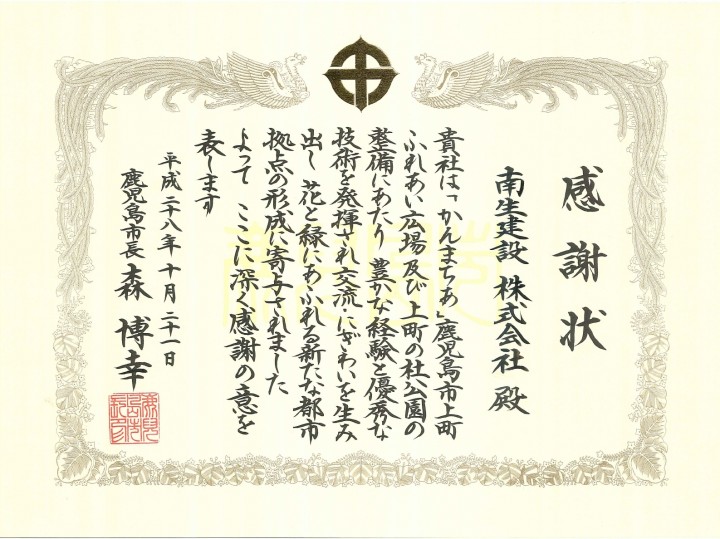 感謝状
南生建設 株式会社 殿
貴社は「かんまちあ」鹿児島市上町
ふれあい広場及び上町の杜公園の
整備にあたり 豊かな経験と優秀な
技術を発揮され交流・にぎわいを生み
出し 花と緑にあふれる新たな都市
拠点の形成に寄与されました
よって ここに深く感謝の意を
表します
平成二八年十月二十一日
鹿児島市長 森 博幸